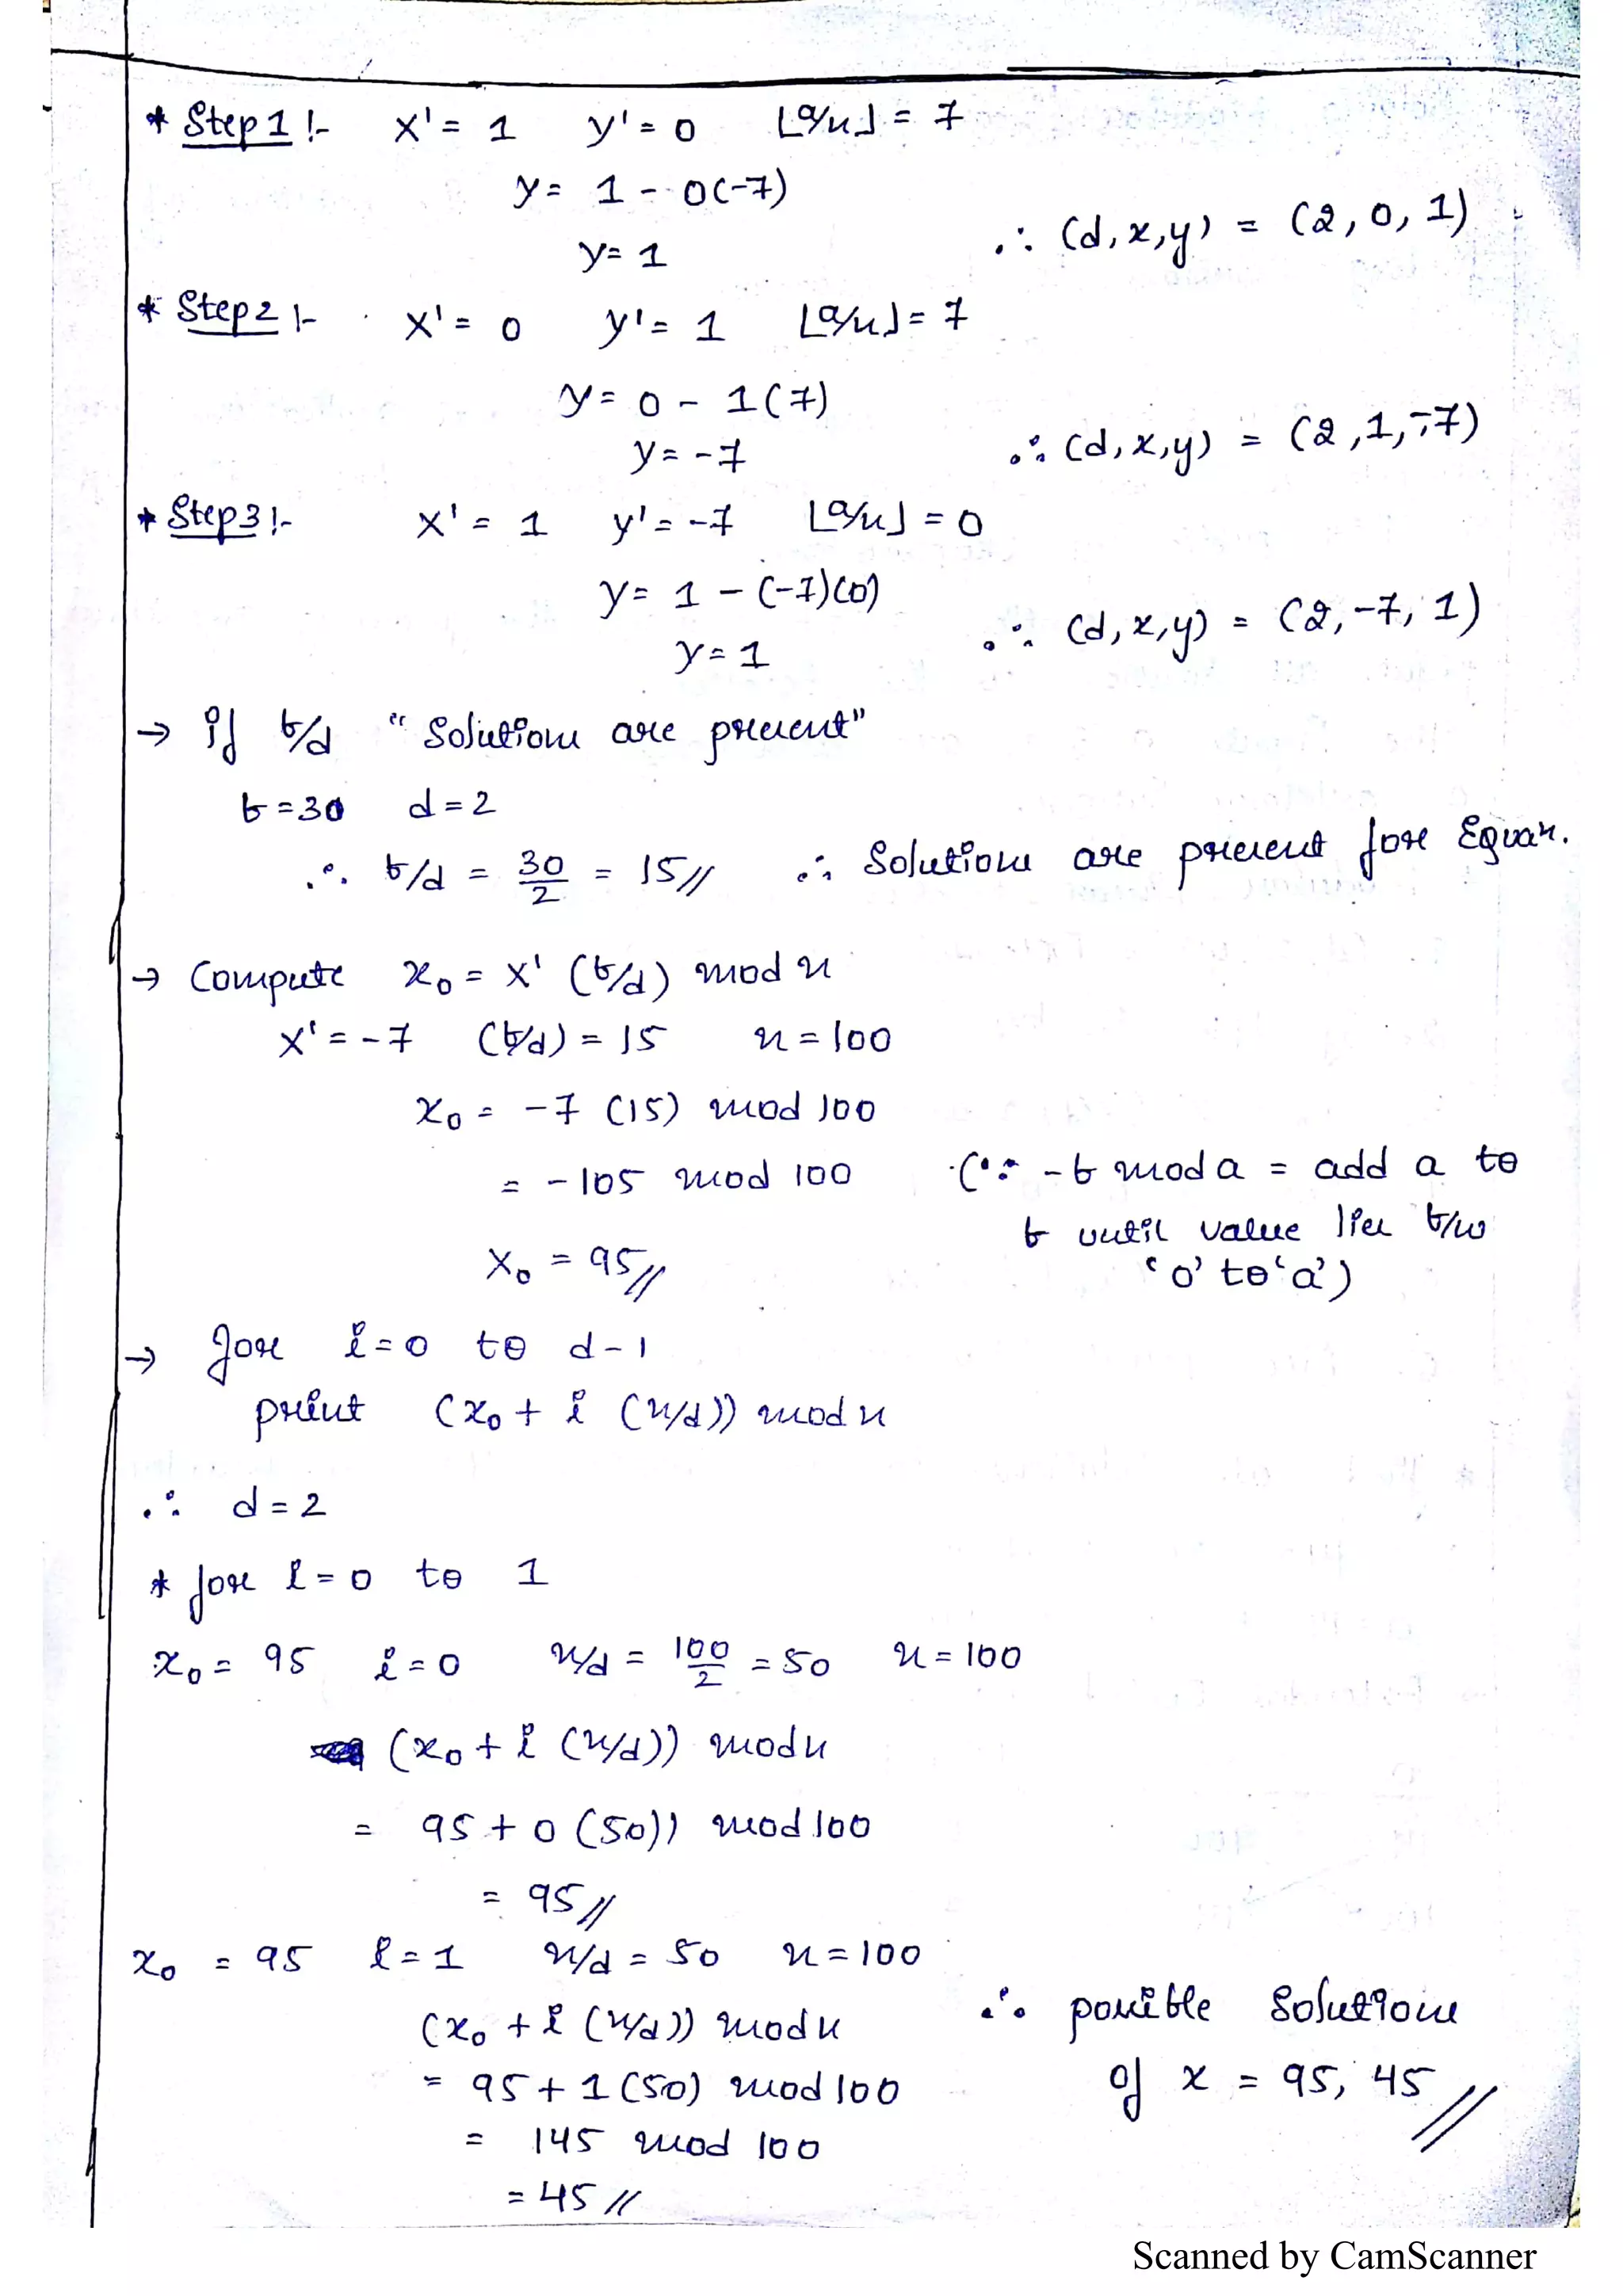 * Step 1 :- x' = 1 y' = 0 ⌊a/n⌋ = 7
y = 1 - 0(-7)
y = 1 ∴ (d, x, y) = (2, 0, 1)
* Step 2 :- x' = 0 y' = 1 ⌊a/n⌋ = 7
y = 0 - 1(7)
y = -7 ∴ (d, x, y) = (2, 1, -7)
* Step 3 :- x' = 1 y' = -7 ⌊a/n⌋ = 0
y = 1 - (-7)(0)
y = 1 ∴ (d, x, y) = (2, -7, 1)
→ if b/d "Solutions are present"
b = 30 d = 2
∴ b/d = 30/2 = 15// ∴ Solutions are present for Equan.
→ Compute x₀ = x' (b/d) mod n
x' = -7 (b/d) = 15 n = 100
x₀ = -7 (15) mod 100
= -105 mod 100 (∵ -b mod a = add a to
b until value lies b/w
'0' to 'a')
x₀ = 95//
→ for i = 0 to d - 1
print (x₀ + i (n/d)) mod n
∴ d = 2
* for i = 0 to 1
x₀ = 95 i = 0 n/d = 100/2 = 50 n = 100
(x₀ + i (n/d)) mod n
= 95 + 0 (50)) mod 100
= 95//
x₀ = 95 i = 1 n/d = 50 n = 100
(x₀ + i (n/d)) mod n
= 95 + 1 (50) mod 100
= 145 mod 100
= 45//
∴ possible solutions
of x = 95, 45//
Scanned by CamScanner